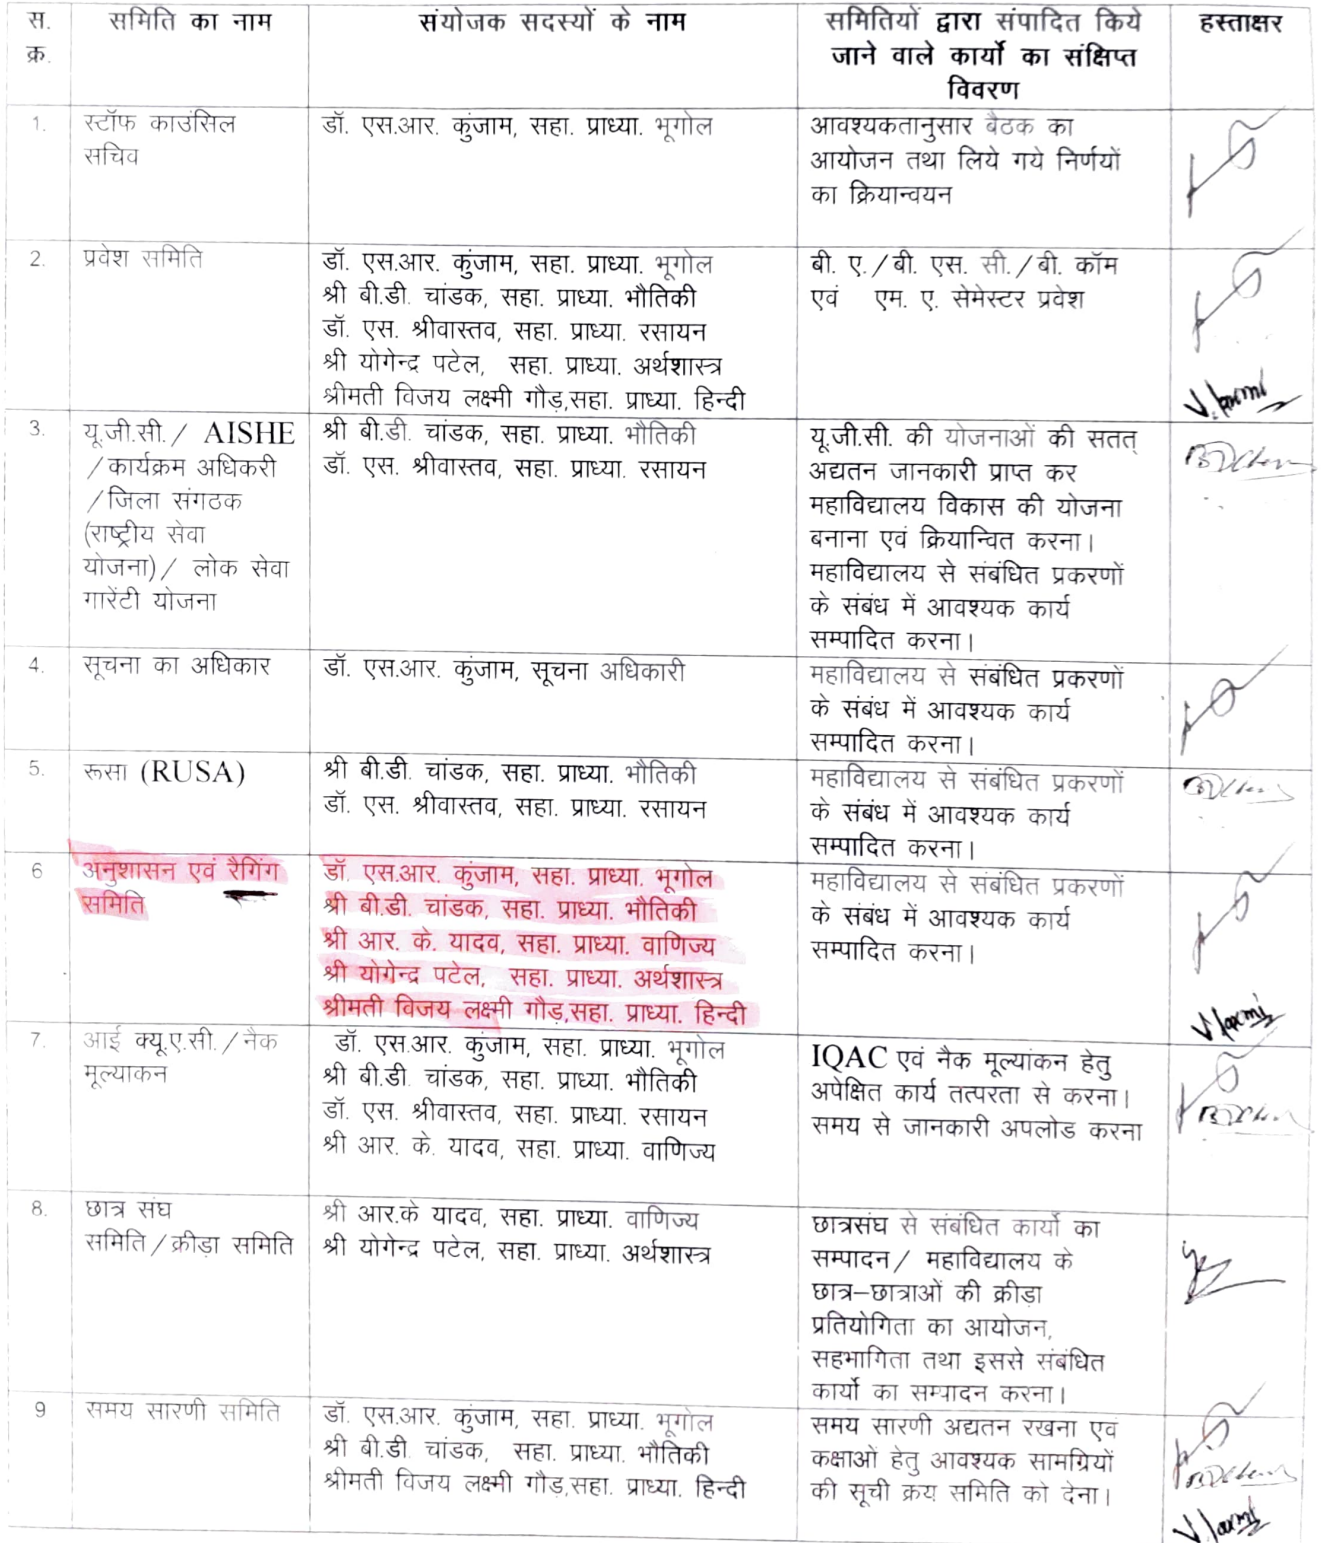 स. क्र. समिति का नाम संयोजक सदस्यों के नाम समितियों द्वारा संपादित किये जाने वाले कार्यो का संक्षिप्त विवरण हस्ताक्षर
1. स्टॉफ काउंसिल
सचिव
डॉ. एस.आर. कुंजाम, सहा. प्राध्या. भूगोल
आवश्यकतानुसार बैठक का
आयोजन तथा लिये गये निर्णयों
का क्रियान्वयन
2. प्रवेश समिति
डॉ. एस.आर. कुंजाम, सहा. प्राध्या. भूगोल
श्री बी.डी. चांडक, सहा. प्राध्या. भौतिकी
डॉ. एस. श्रीवास्तव, सहा. प्राध्या. रसायन
श्री योगेन्द्र पटेल, सहा. प्राध्या. अर्थशास्त्र
श्रीमती विजय लक्ष्मी गौड़,सहा. प्राध्या. हिन्दी
बी. ए./बी. एस. सी./बी. कॉम
एवं एम. ए. सेमेस्टर प्रवेश
V. laxmi
3. यू.जी.सी./ AISHE
/कार्यक्रम अधिकरी
/जिला संगठक
(राष्ट्रीय सेवा
योजना)/ लोक सेवा
गारेंटी योजना
श्री बी.डी. चांडक, सहा. प्राध्या. भौतिकी
डॉ. एस. श्रीवास्तव, सहा. प्राध्या. रसायन
यू.जी.सी. की योजनाओं की सतत्
अद्यतन जानकारी प्राप्त कर
महाविद्यालय विकास की योजना
बनाना एवं क्रियान्वित करना।
महाविद्यालय से संबंधित प्रकरणों
के संबंध में आवश्यक कार्य
सम्पादित करना।
4. सूचना का अधिकार
डॉ. एस.आर. कुंजाम, सूचना अधिकारी
महाविद्यालय से संबंधित प्रकरणों
के संबंध में आवश्यक कार्य
सम्पादित करना।
5. रूसा (RUSA)
श्री बी.डी. चांडक, सहा. प्राध्या. भौतिकी
डॉ. एस. श्रीवास्तव, सहा. प्राध्या. रसायन
महाविद्यालय से संबंधित प्रकरणों
के संबंध में आवश्यक कार्य
सम्पादित करना।
6 अनुशासन एवं रैगिंग
समिति
डॉ. एस.आर. कुंजाम, सहा. प्राध्या. भूगोल
श्री बी.डी. चांडक, सहा. प्राध्या. भौतिकी
श्री आर. के. यादव, सहा. प्राध्या. वाणिज्य
श्री योगेन्द्र पटेल, सहा. प्राध्या. अर्थशास्त्र
श्रीमती विजय लक्ष्मी गौड़,सहा. प्राध्या. हिन्दी
महाविद्यालय से संबंधित प्रकरणों
के संबंध में आवश्यक कार्य
सम्पादित करना।
V laxmi
7. आई क्यू.ए.सी./नैक
मूल्याकन
डॉ. एस.आर. कुंजाम, सहा. प्राध्या. भूगोल
श्री बी.डी. चांडक, सहा. प्राध्या. भौतिकी
डॉ. एस. श्रीवास्तव, सहा. प्राध्या. रसायन
श्री आर. के. यादव, सहा. प्राध्या. वाणिज्य
IQAC एवं नैक मूल्यांकन हेतु
अपेक्षित कार्य तत्परता से करना।
समय से जानकारी अपलोड करना
8. छात्र संघ
समिति/क्रीड़ा समिति
श्री आर.के यादव, सहा. प्राध्या. वाणिज्य
श्री योगेन्द्र पटेल, सहा. प्राध्या. अर्थशास्त्र
छात्रसंघ से संबंधित कार्यो का
सम्पादन/ महाविद्यालय के
छात्र–छात्राओं की क्रीड़ा
प्रतियोगिता का आयोजन,
सहभागिता तथा इससे संबंधित
कार्यो का सम्पादन करना।
9 समय सारणी समिति
डॉ. एस.आर. कुंजाम, सहा. प्राध्या. भूगोल
श्री बी.डी. चांडक, सहा. प्राध्या. भौतिकी
श्रीमती विजय लक्ष्मी गौड़,सहा. प्राध्या. हिन्दी
समय सारणी अद्यतन रखना एवं
कक्षाओं हेतु आवश्यक सामग्रियों
की सूची क्रय समिति को देना।
V laxmi